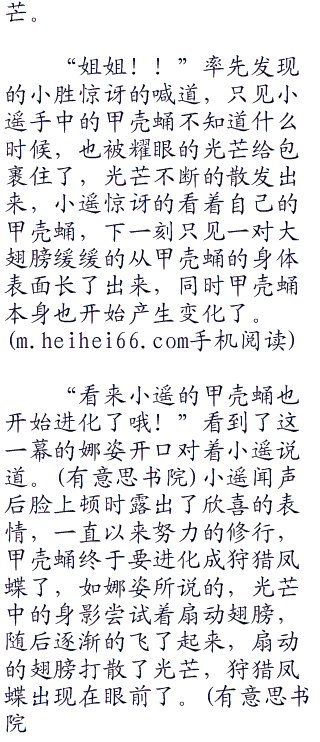 芒。
“姐姐！！”率先发现
的小胜惊讶的喊道，只见小
遥手中的甲壳蛹不知道什么
时候，也被耀眼的光芒给包
裹住了，光芒不断的散发出
来，小遥惊讶的看着自己的
甲壳蛹，下一刻只见一对大
翅膀缓缓的从甲壳蛹的身体
表面长了出来，同时甲壳蛹
本身也开始产生变化了。
(m.heihei66.com手机阅读)
“看来小遥的甲壳蛹也
开始进化了哦！”看到了这
一幕的娜姿开口对着小遥说
道。(有意思书院)小遥闻声
后脸上顿时露出了欣喜的表
情，一直以来努力的修行，
甲壳蛹终于要进化成狩猎凤
蝶了，如娜姿所说的，光芒
中的身影尝试着扇动翅膀，
随后逐渐的飞了起来，扇动
的翅膀打散了光芒，狩猎凤
蝶出现在眼前了。(有意思书
院